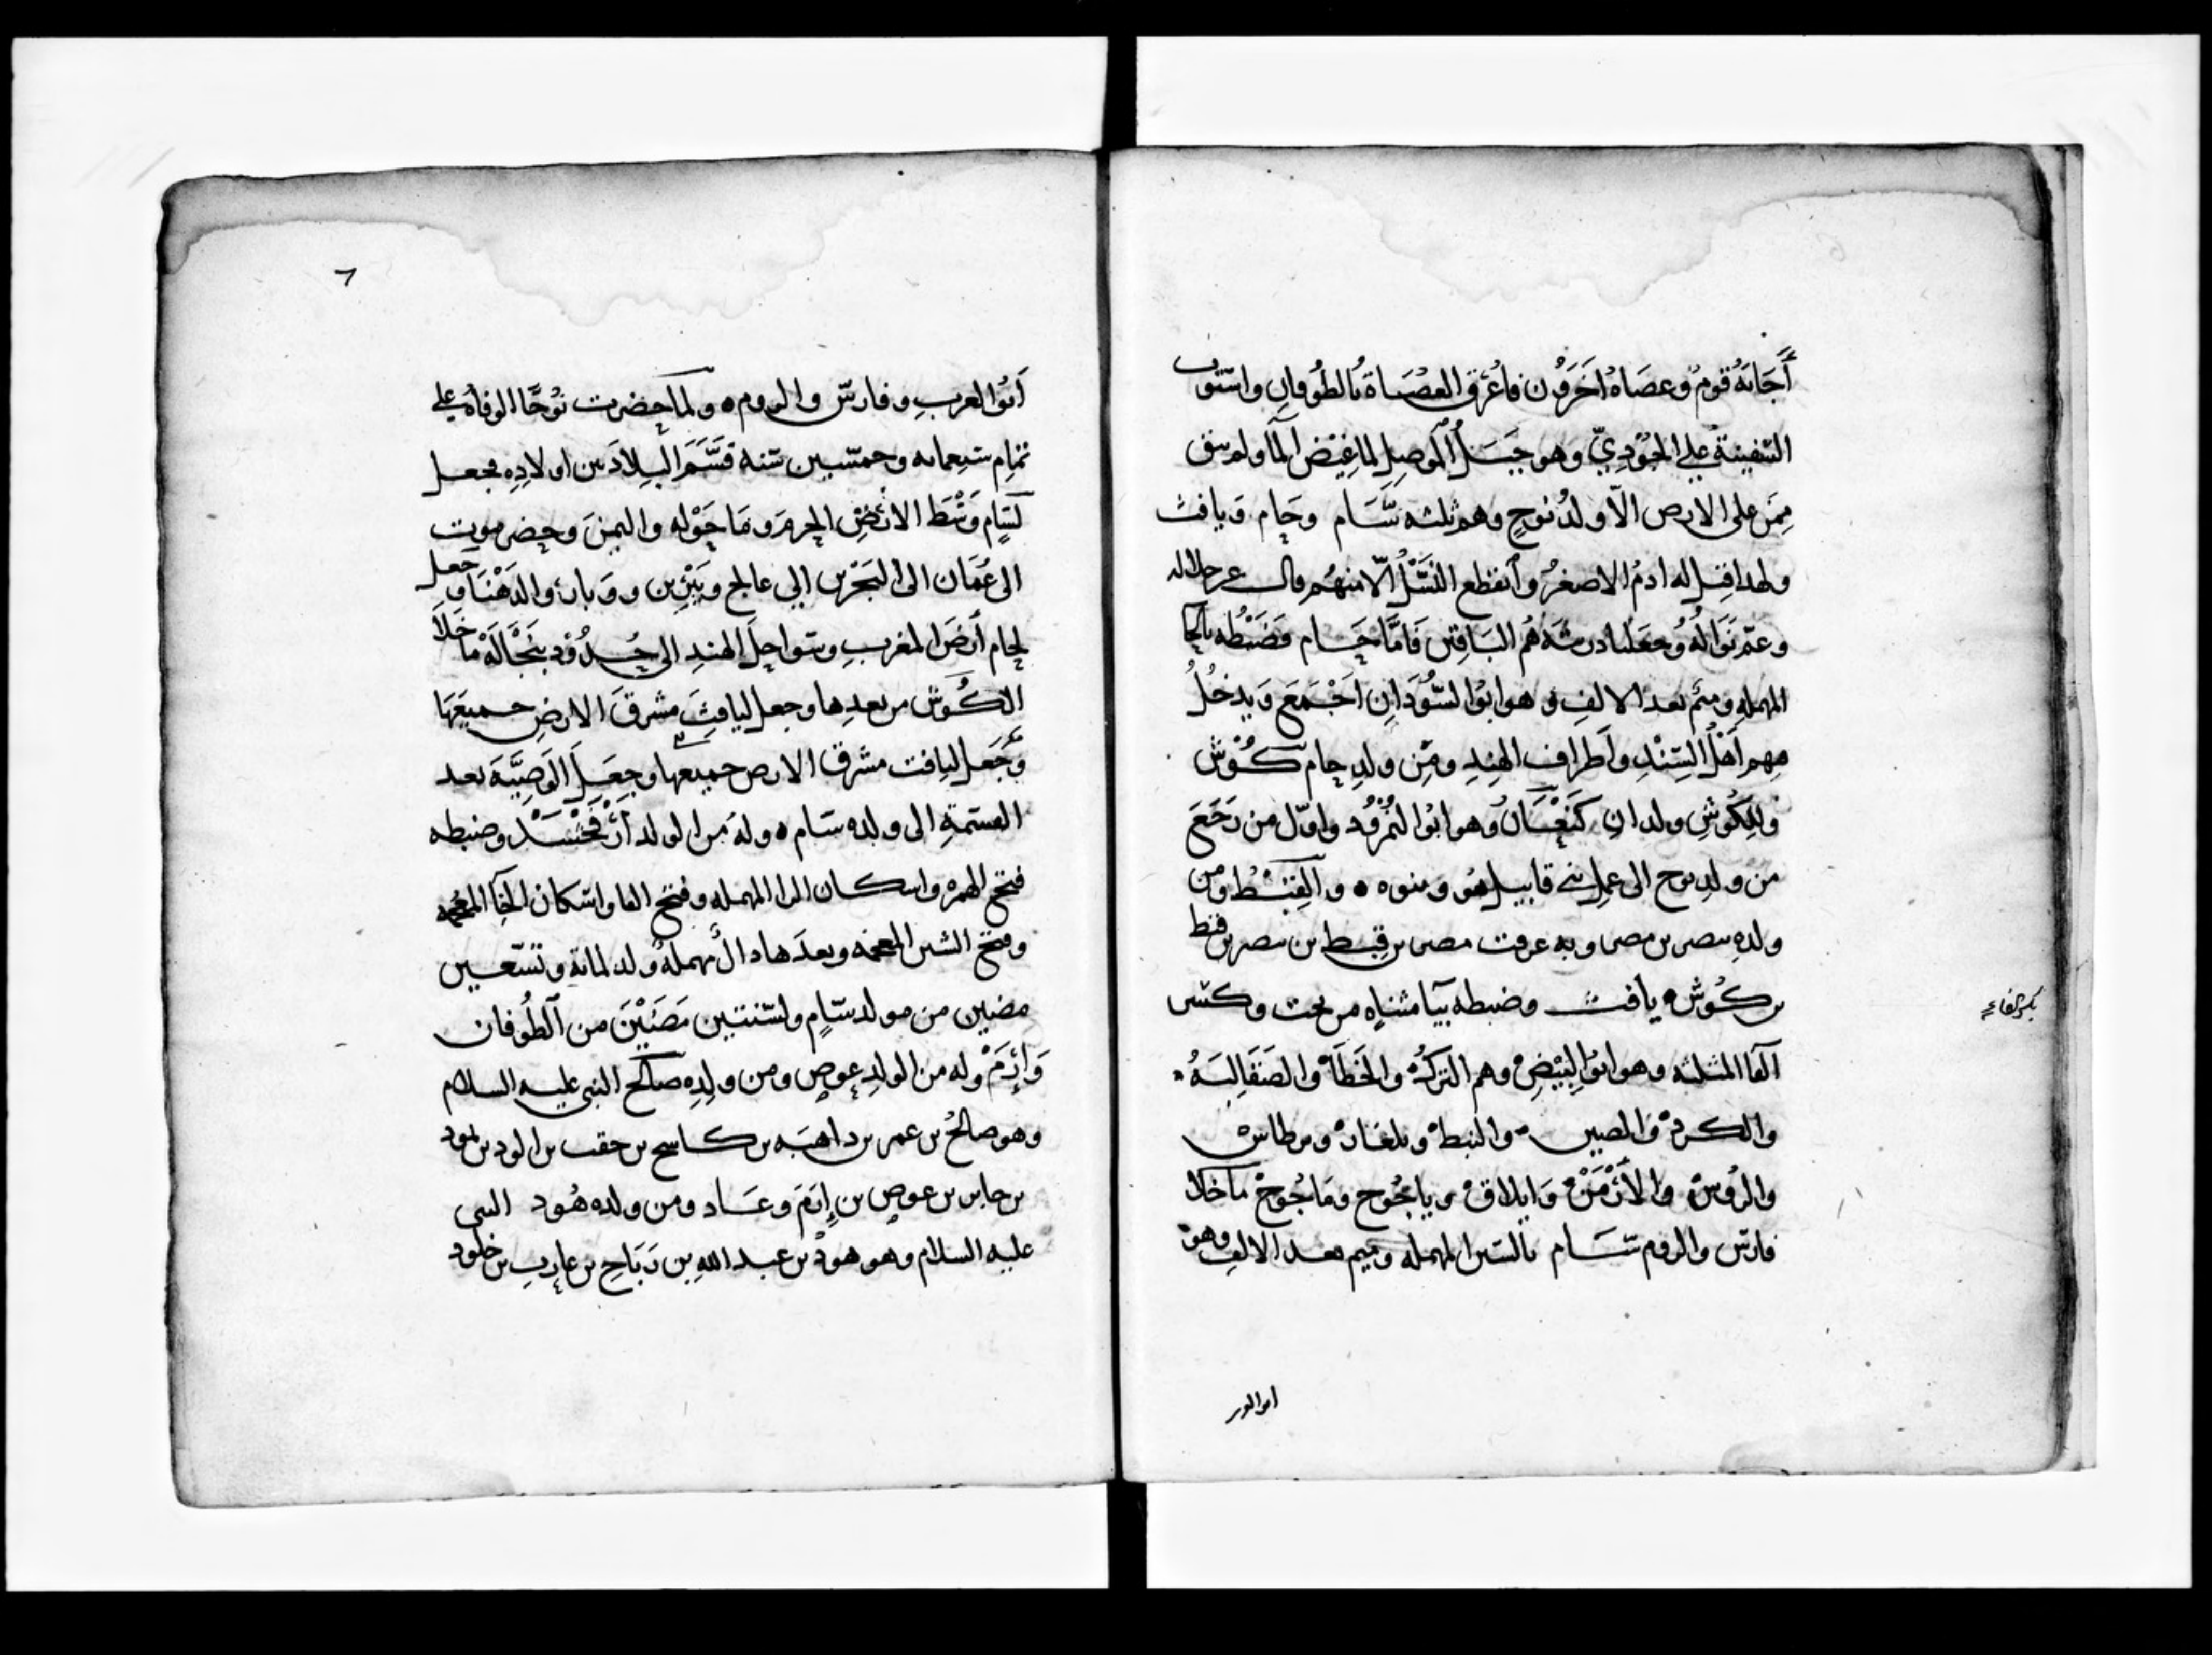 أَجَابَهُ قومٌ وعصَاهُ اخَرُون فاُغرق العُصَاة بالطُوفان واستوت
السَّفينةُ على الجُوديّ وهو جَبَلُ المَوصِل لما غِيْضَ المآ ولم يبق
مِمَن على الارض الاّ ولدُ نوحٍ وهم ثلثه سَام وحَام وَيافث
ولهذا قيل له ادمُ الاصغرُ وانقطع النَسْلُ الّا منهُم قال عز جلاله
وعمّ نَوَالُهُ وجَعَلنا ذريتَه هُم البَاقين فَامَّا حَام فَضَبْطُه بالحا
المهمله وميم بعد الالفِ وهو ابُوا السُّودَان اَجْمَعَ وَيدخُلُ
فيهم اَهلُ السِّنْدِ واَطراف الهندِ ومِن ولدِ حام كُوْش
ولِكُوشٍ ولدان كَنعَان وهو ابُوا النُمْرُود واوّل من رَجَعَ
من ولدِ نوح الى عمل بني قابيل هُو وبنوه ٥ والقِبْطُ ومن
ولدهِ مصر بن مصر وبه عرفت مصر بن قِبط بن مصر بن قبط
بن كُوش ٥ يافث وضبطه بيآ مثناه من تحت وكسر
الفا المثلثه وهو ابوُا البِيْضِ وهم التركُ والخَطَا والصَقَالِبَهُ
والكردْ والصين والنبط وبلغار وبرطاس
والرُوس والأَرْمَنْ وَايلاق وياجُوج ومَاجُوج ماخلا
فارس والروم سَام بالسّين المهمله وميم بعد الالف وهو
بكسر الفاء
ابو العرب
٦
اَبوُا العربِ وفارسّ والروم ٥ ولما حضرت نوُحًا الوفاة على
تمام تسعمايه وخمسين سنه قسَّمَ البِلادَ بين اولادِه فجعل
لسَامٍ وَسْطَ الارْضِ الحرمَ ومَا حَوْله واليمنَ وحضرموت
الى عُمَان الى البَحْرين الى عالج ويَبْرِين ووَبارْ والدَهْنَا وجعل
لحام أرضَ المغربِ وسَواحِلَ الهندِ الى حُدُوْد بَنْجَالَهْ ما خَلَا
الكُوشَ من بعدِها وجعل ليافِثَ مشرقَ الارضِ جميعَهَا
وَجَعَل ليافت مشرق الارض جميعها وجعَلَ الوَصِيَّةَ بعد
القسمةِ الى ولده سَام ٥ ولهُ من الولد أرْفَخْشَدْ وضبطه
فتح الهمزه واسكان الرا المهمله وفتح الفا واسكان الخآ المعجمه
وفتح الشين المعجمه وبعدَها دالٌ مهملهٌ ولد لمائة وتسعين
مضين من مولد سَامٍ ولسنتين مَضَيْنَ من الطُوفان
وَاِرَمْ وله من الولدِ عوص ومن ولدِه صالح النبى عليه السلام
وهو صالحُ بن عمر بن داهبَه بن كاسح بن حقب بن الود بن ثمود
بن جابر بن عوص بن إِرَمَ وعَاد ومن ولده هُود النبى
عليه السلام وهو هودُ بن عبد الله بن رَبَاحِ بن عارب بن خلود